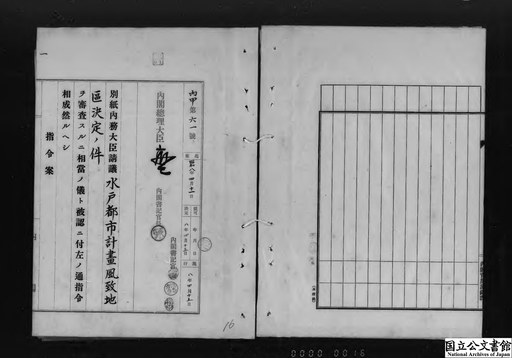 内甲第六一號
内閣總理大臣
内閣書記官長
内閣書記官
別紙内務大臣請議水戸都市計畫風致地
區決定ノ件
ヲ審査スルニ相當ノ儀ト被認ニ付左ノ通指令
相成然ルヘシ
指令案
16
0000 0016
国立公文書館
National Archives of Japan